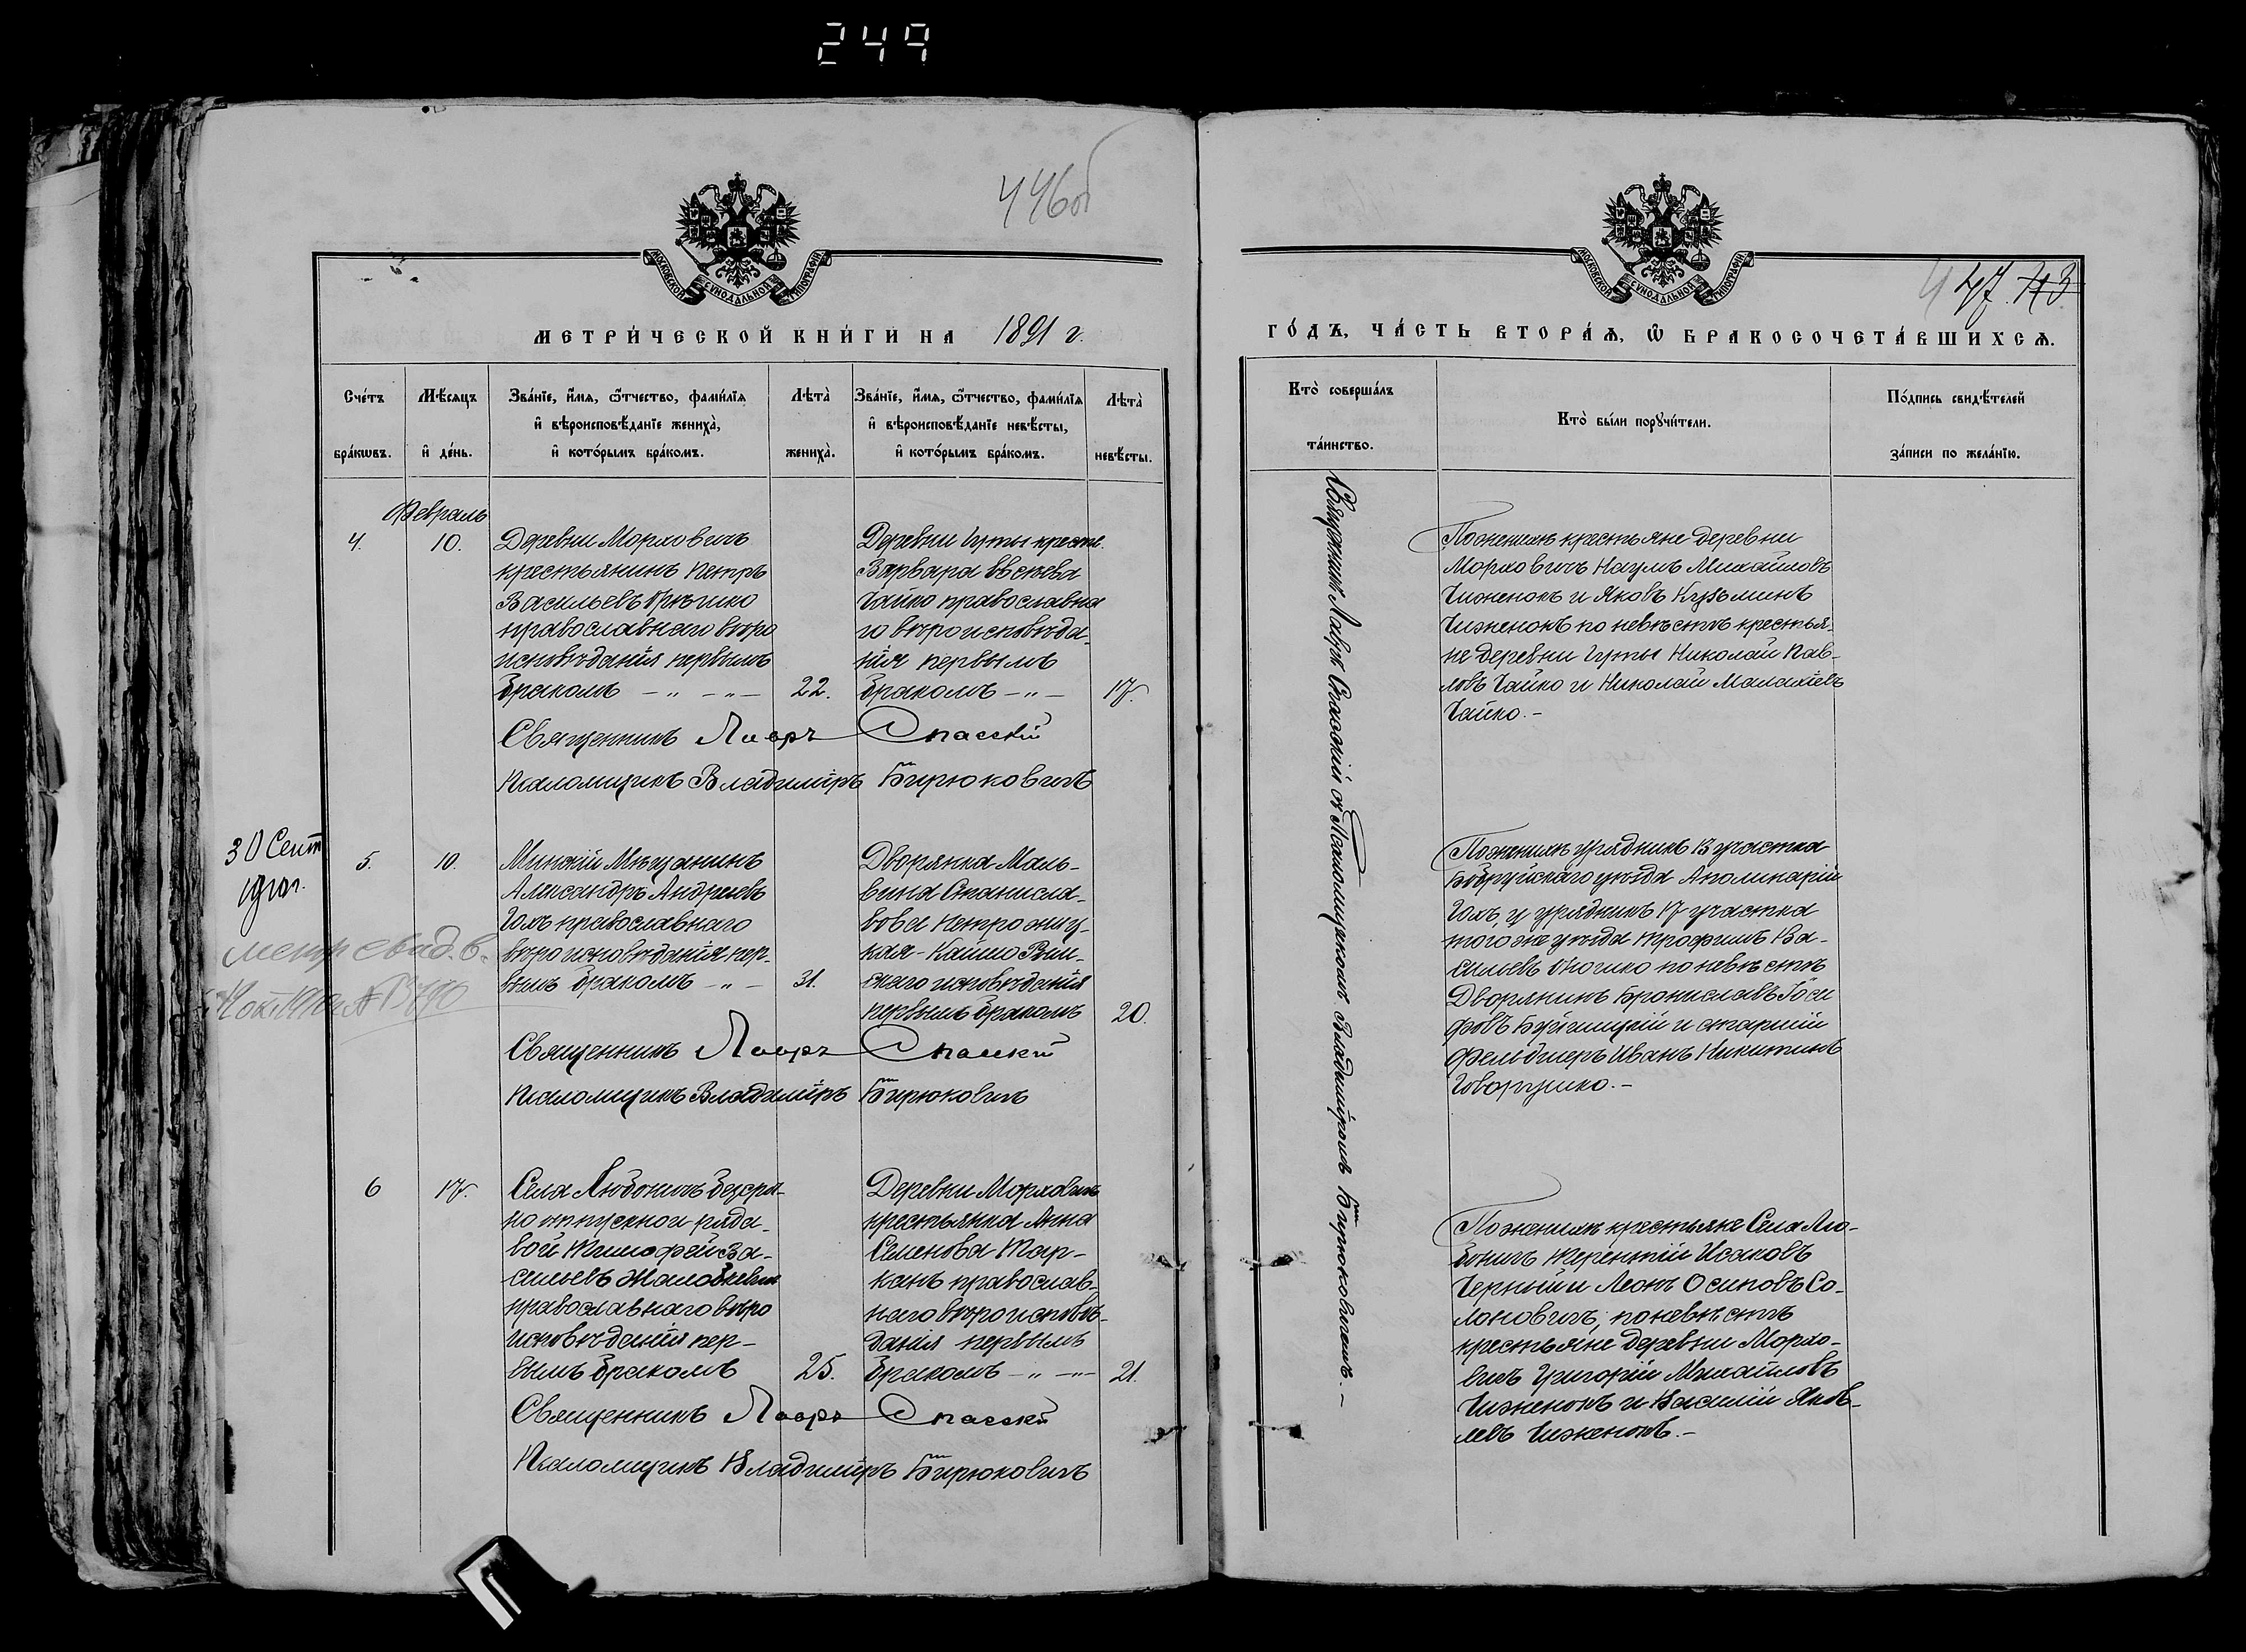 249
446об
МОСКОВСКОЙ СѴНОДАЛЬНОЙ ТИПОГРАФІИ
МЕТРИ́ЧЕСКОЙ КНИ́ГИ НА 1891 г.
Сче́тъ бра́кѡвъ.
Мѣ́сяцъ и҆ де́нь.
Зва́нїе, и҆́мѧ, ѻ҆́тчество, фами́лїѧ
и҆ вѣроисповѣ́данїе жениха̀,
и҆ кото́рымъ бра́комъ.
Лѣта̀ жениха̀.
Зва́нїе, и҆́мѧ, ѻ҆́тчество, фами́лїѧ
и҆ вѣроисповѣ́данїе невѣ́сты,
и҆ кото́рымъ бра́комъ.
Лѣта̀ невѣ́сты.
Февраль
4.
10.
Деревни Морховичъ
крестьянинъ Петръ
Васильевъ Грышко
православнаго вѣро
исповѣданія первымъ
бракомъ - „ - „ -
22.
Деревни Гуты крест.
Варвара Евсѣева
Чайко православна
го вѣроисповѣда-
нія первымъ
бракомъ - „ -
17.
Священникъ Лавръ Спасскій
Псаломщикъ Владиміръ Бирюковичъ
30 Сент
метр свид. в.
5.
10.
Минскій Мѣщанинъ
Александръ Андреевъ
Гохъ православнаго
вѣроисповѣданія пер-
вымъ бракомъ - „ -
31.
Дворянка Маль-
вина Станисла-
вова
Рим-
скаго исповѣданія
первымъ бракомъ
20.
Священникъ Лавръ Спасскій
Псаломщикъ Владиміръ Бирюковичъ
6
17.
Села Любоничъ безсро-
но отпускной рядо-
вой Тимофей Ва-
сильевъ
православнаго вѣро
исповѣданія пер-
вымъ бракомъ
25.
Деревни Морховичъ
крестьянка Анна
Семенова Тар-
канъ православ-
наго вѣроисповѣ-
данія первымъ
бракомъ - „ - „ -
21.
Священникъ Лавръ Спасскій
Псаломщикъ Владиміръ Бирюковичъ
МОСКОВСКОЙ СѴНОДАЛЬНОЙ ТИПОГРАФІИ
447. 413
ГО́ДЪ, ЧА́СТЬ ВТОРА́Ѧ, Ѡ҆ БРАКОСОЧЕТА́ВШИХСѦ.
Кто̀ соверша́лъ
та́инство.
Кто̀ бы́ли порꙋчи́тели.
По́дпись свидѣ́телей
за́писи по жела́нїю.
Священникъ Лавръ Спасскій съ Псаломщикомъ Владиміромъ Бирюковичемъ. -
По женихѣ крестьяне деревни
Морховичъ Наумъ Михайловъ
Чиженокъ и Яковъ Кузьминъ
Чиженокъ по невѣстѣ крестья-
не деревни Гуты Николай Пав-
ловъ Чайко и Николай Малахіевъ
Чайко. -
По женихѣ урядникъ 13 участка
Бобруйскаго уѣзда Аполинарій
Гохъ, и урядникъ 17 участка
того же уѣзда Трофимъ Ва-
сильевъ по невѣстѣ
Дворянинъ Брониславъ Іоси
фовъ и старшій
фельдшеръ Иванъ Никитинъ
Говорушко. -
По женихѣ крестьяне Села Лю-
боничъ Терентій Исаковъ
Черный и Леонъ Осиповъ Со-
лоновичъ, по невѣстѣ
крестьяне деревни Морхо-
вичъ Григорій Михайловъ
Чиженокъ и Василій Яков-
левъ Чиженокъ. -